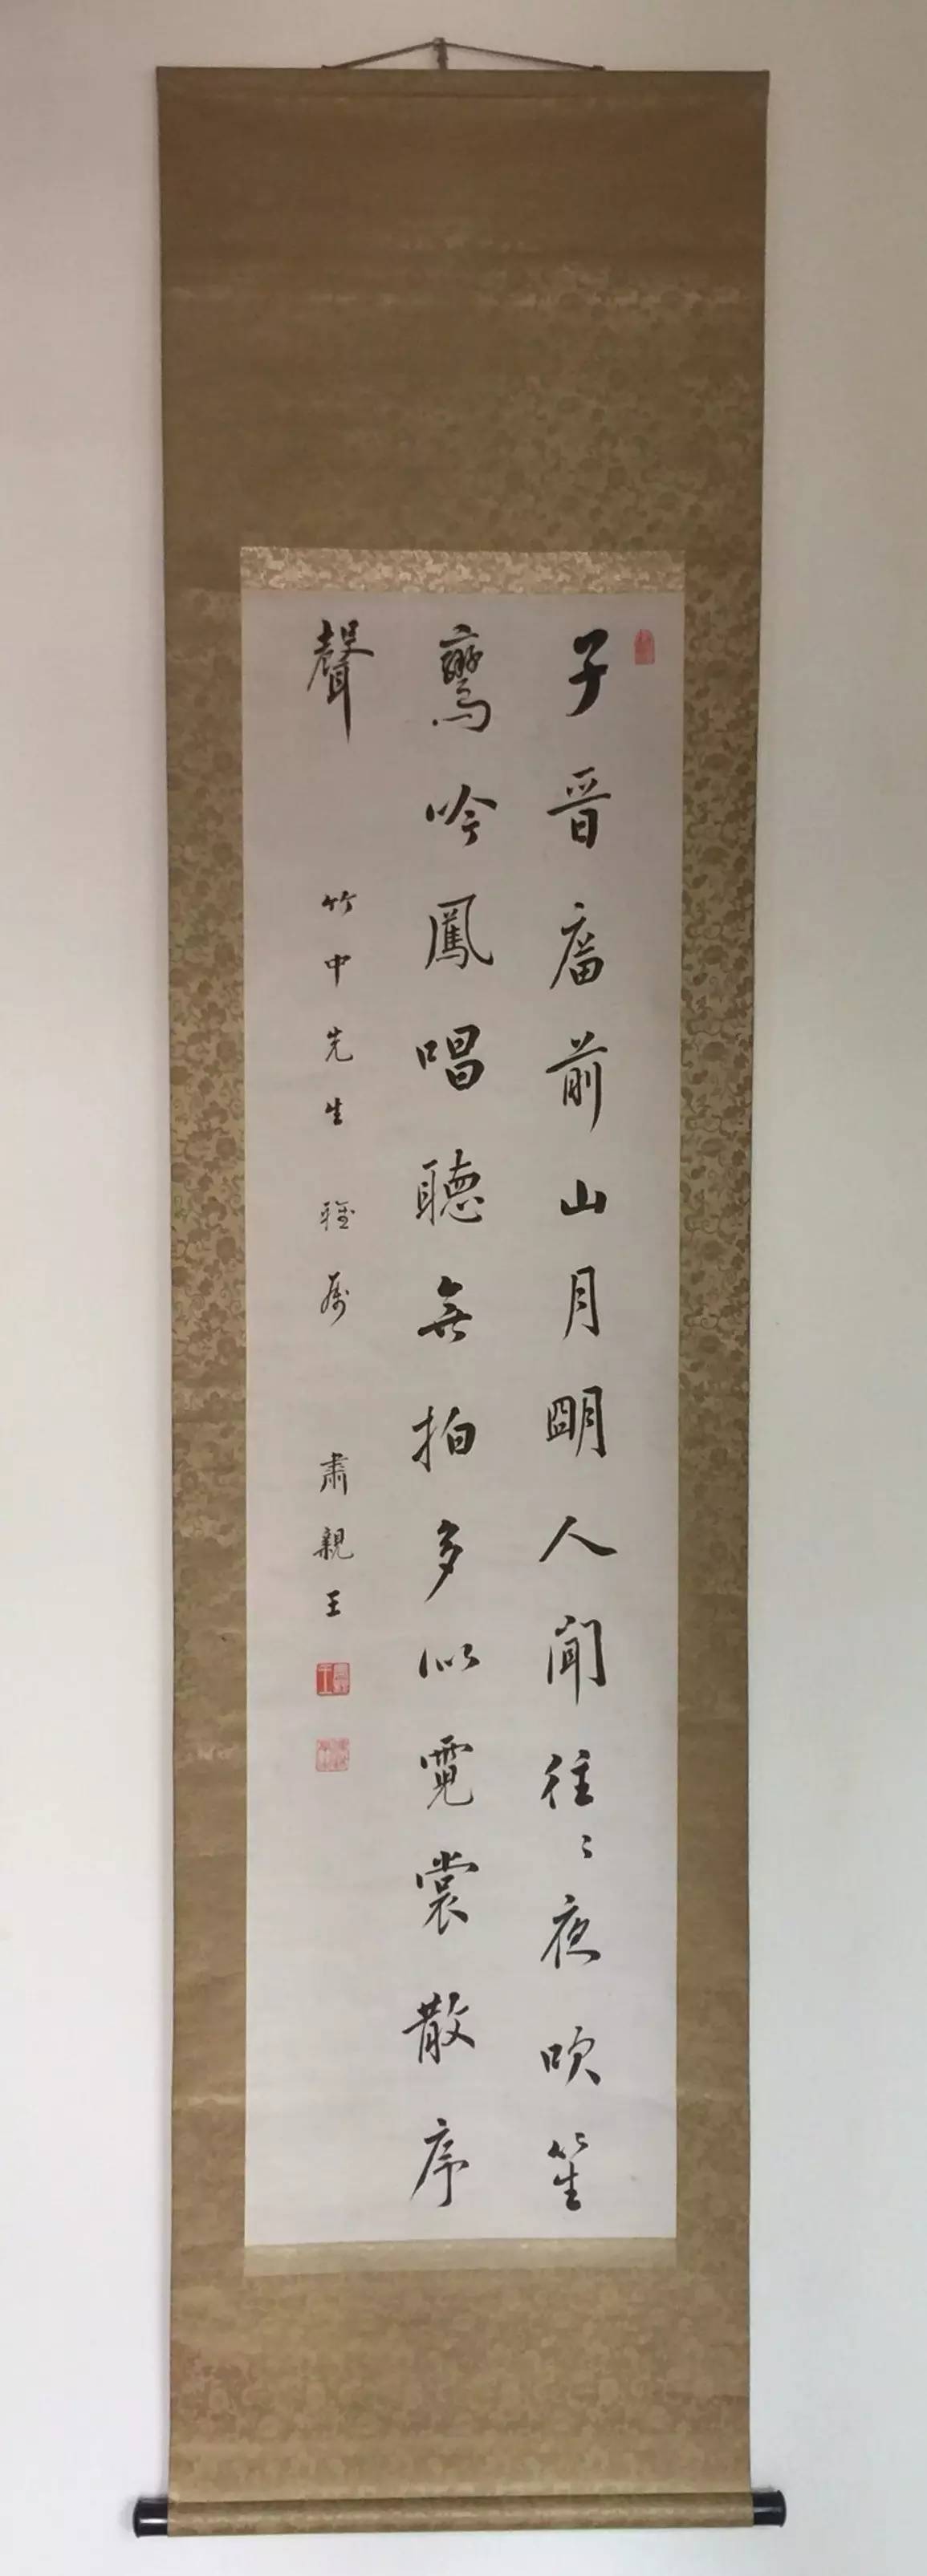 子晉廟前山月明人聞往〻夜吹笙
鸞吟鳳唱聽無拍多似霓裳散序
聲
竹中先生 雅屬 肅親王